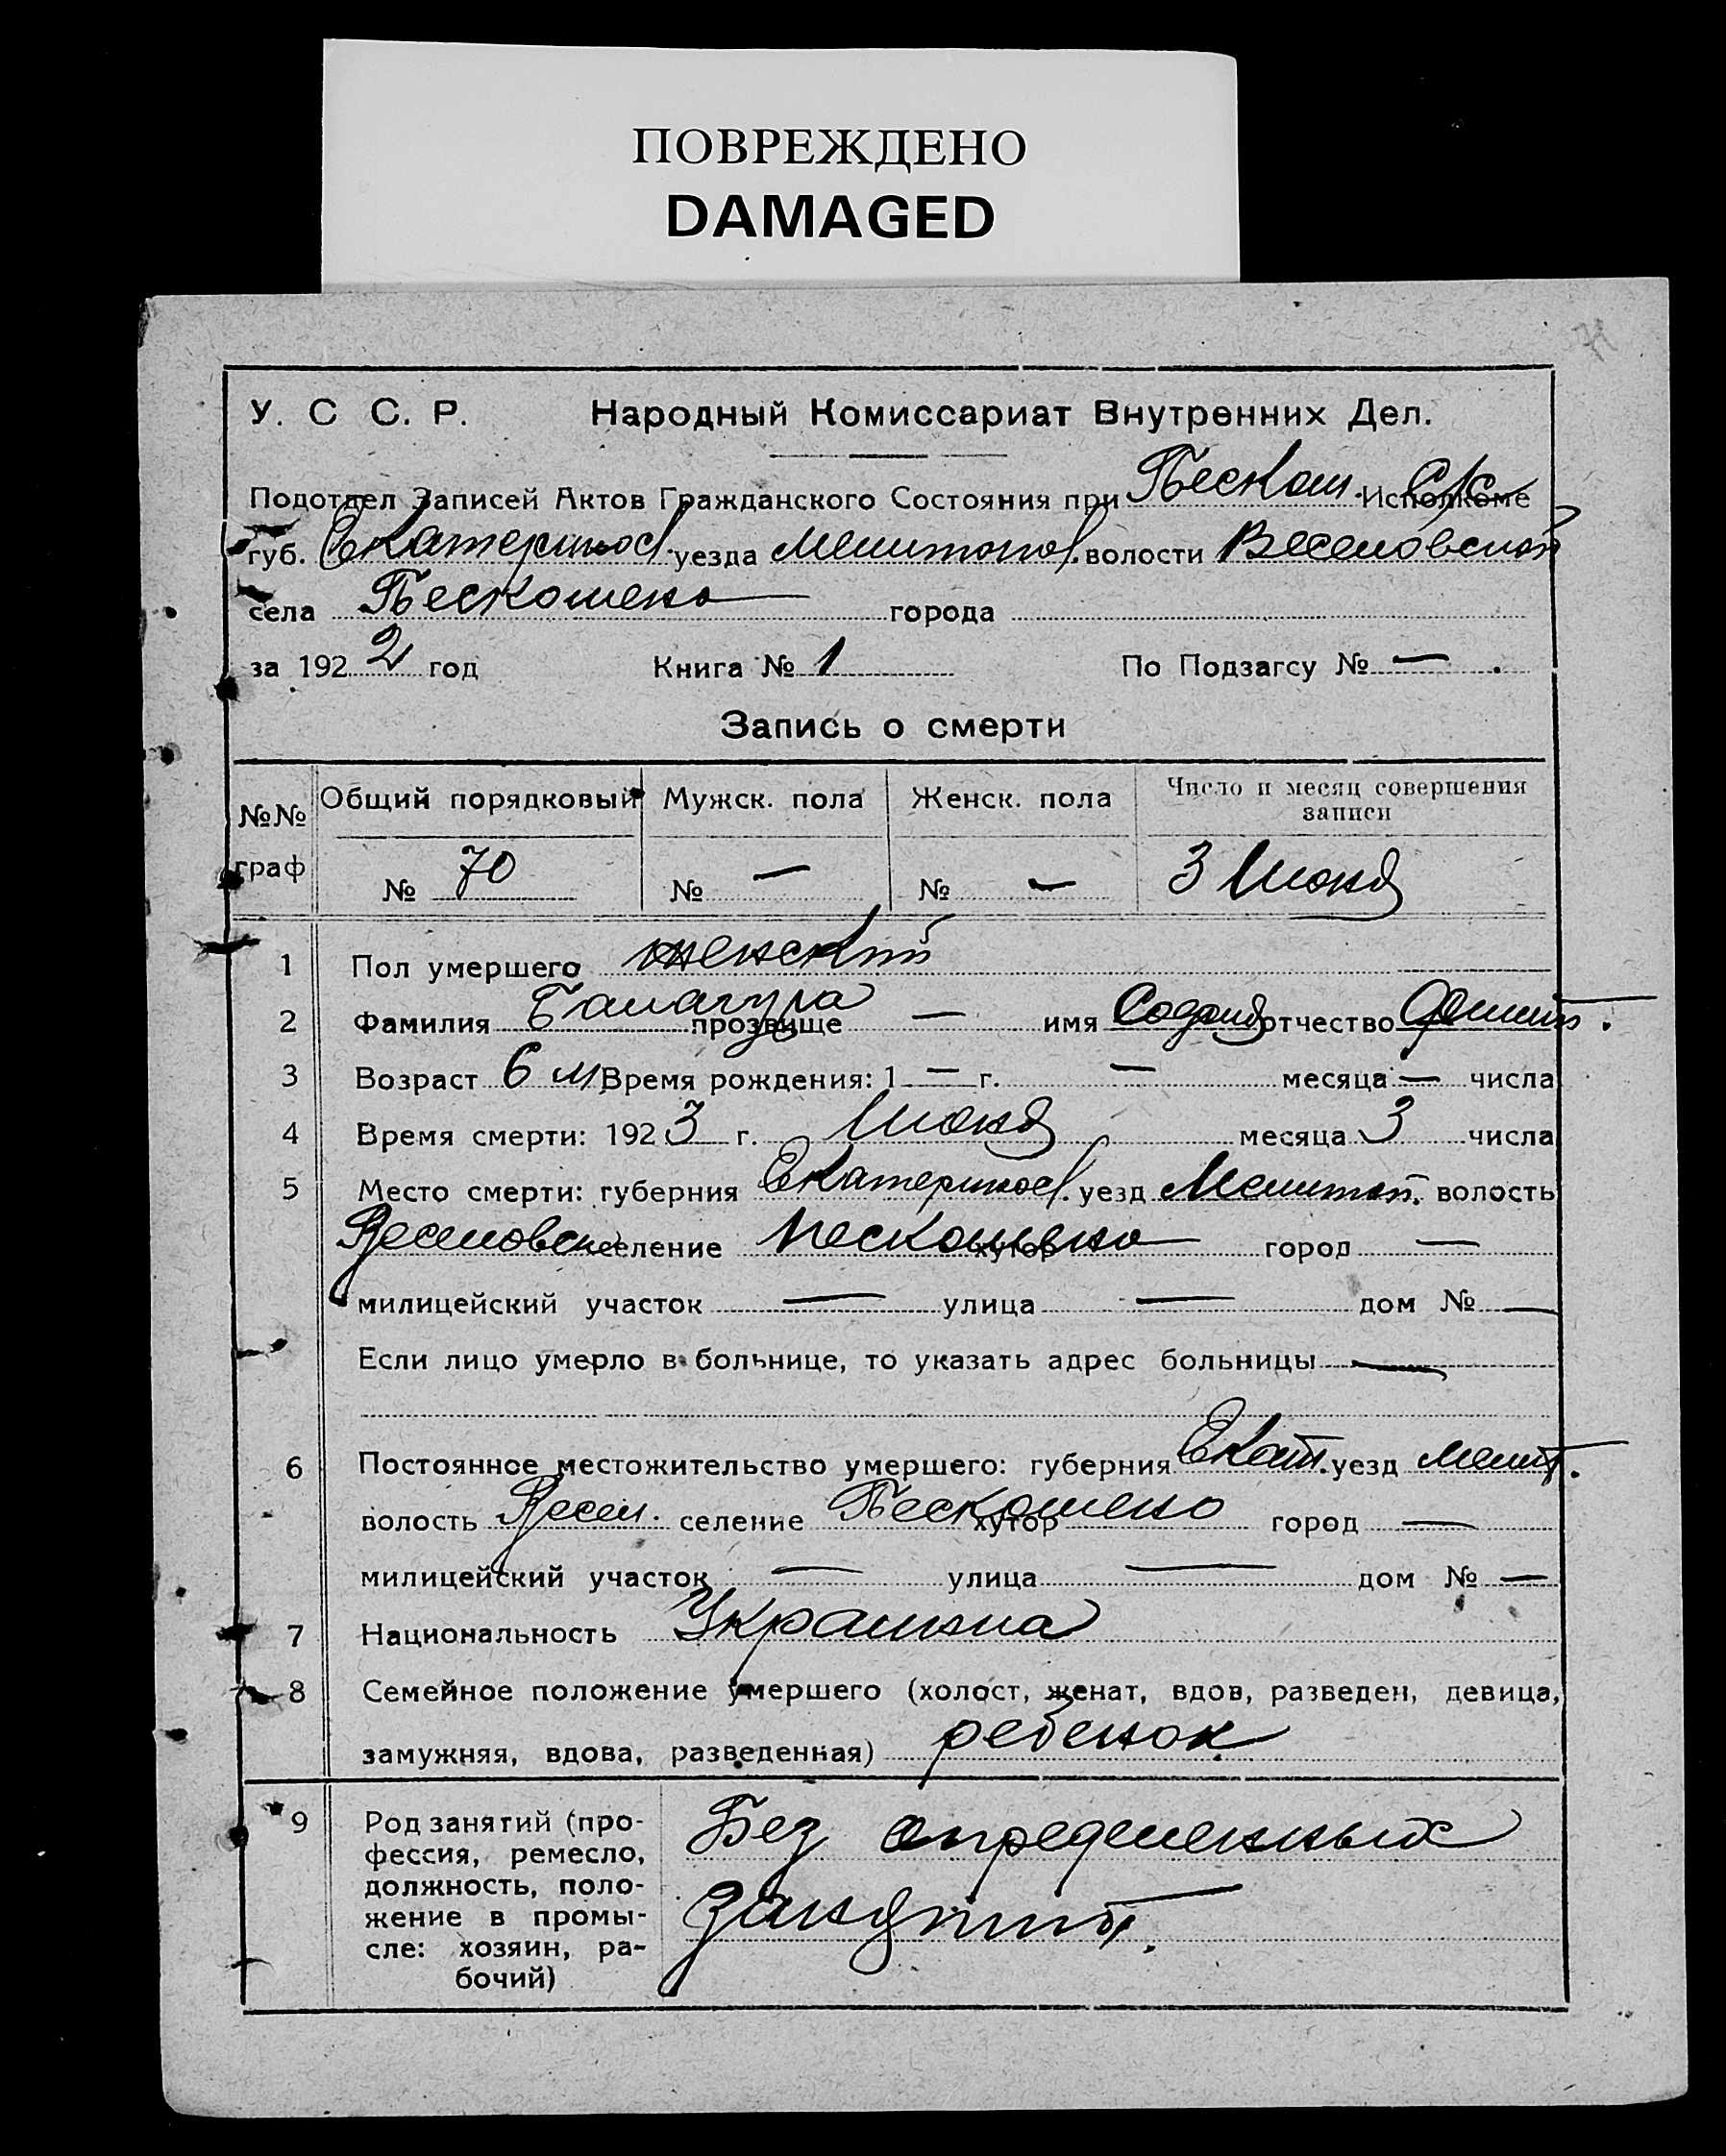 ПОВРЕЖДЕНО
DAMAGED
У. С С. Р. Народный Комиссариат Внутренних Дел.
Подотдел Записей Актов Гражданского Состояния при Пескош. Исполкоме
губ. Екатеринос. уезда Мелитопол. волости Веселовской
села Пескошено города
за 1922 год Книга № 1 По Подзагсу № —
Запись о смерти
№№ граф Общий порядковый Мужск. пола Женск. пола Число и месяц совершения записи
№ 70 № — № — 3 Июня
1 Пол умершего женский
2 Фамилия Балагура прозвище — имя отчество
3 Возраст 6 м Время рождения: 1 — г. — месяца — числа
4 Время смерти: 1923 г. Июня месяца 3 числа
5 Место смерти: губерния Екатеринос. уезд Мелитоп. волость
Веселовск селение Пескошено хутор город —
милицейский участок — улица — дом № —
Если лицо умерло в больнице, то указать адрес больницы —
6 Постоянное местожительство умершего: губерния Екат. уезд Мелит.
волость Весел. селение Пескошено хутор город —
милицейский участок — улица — дом № —
7 Национальность Украинка
8 Семейное положение умершего (холост, женат, вдов, разведен, девица,
замужняя, вдова, разведенная) ребенок
9 Род занятий (про-
фессия, ремесло,
должность, поло-
жение в промы-
сле: хозяин, ра-
бочий)
Без определенных
занятий.